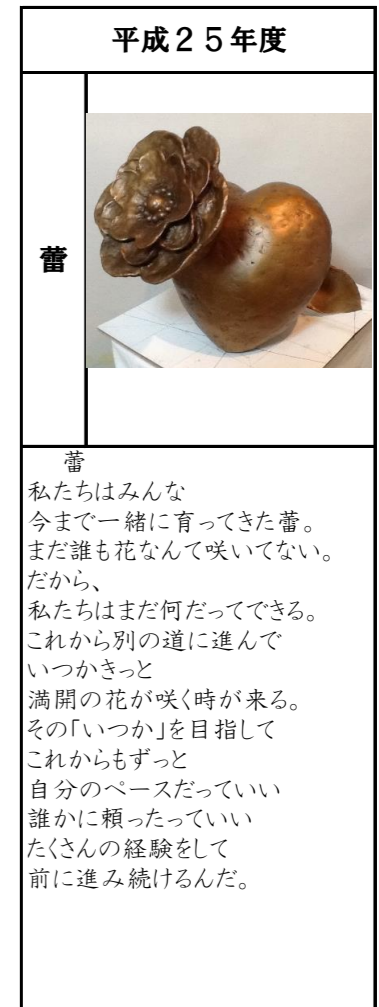 平成２５年度
蕾
蕾
私たちはみんな
今まで一緒に育ってきた蕾。
まだ誰も花なんて咲いてない。
だから、
私たちはまだ何だってできる。
これから別の道に進んで
いつかきっと
満開の花が咲く時が来る。
その「いつか」を目指して
これからもずっと
自分のペースだっていい
誰かに頼ったっていい
たくさんの経験をして
前に進み続けるんだ。